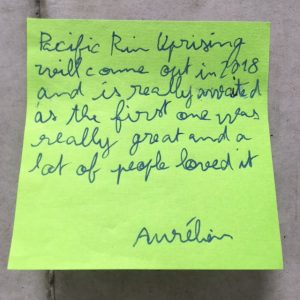 Pacific Rim Uprising
will come out in 2018
and is really awaited
as the first one was
really great and a
lot of people loved it
Aurélien